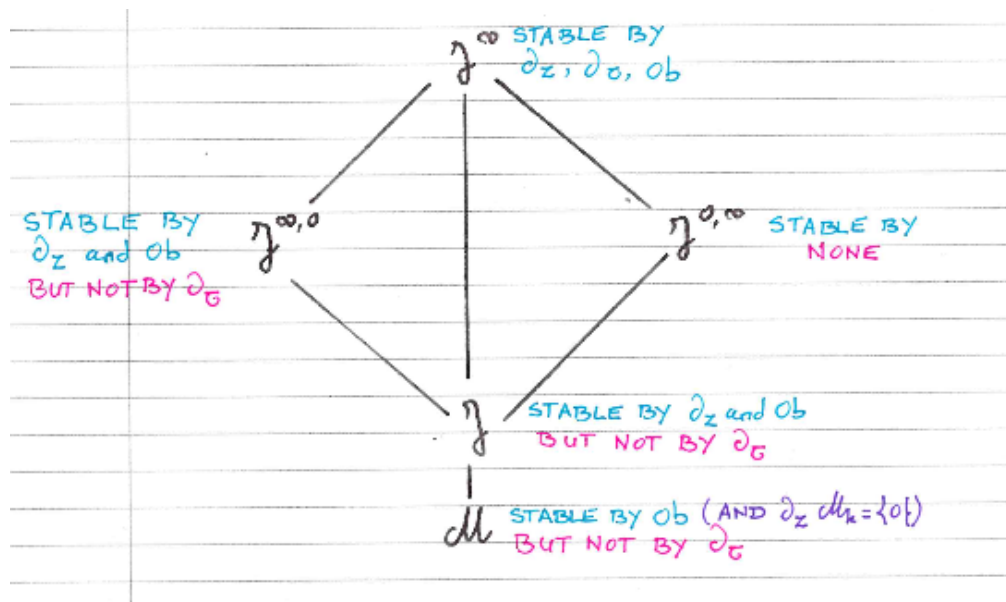 𝒥^∞ STABLE BY
∂_z, ∂_τ, Ob
STABLE BY
∂_z and Ob
BUT NOT BY ∂_τ
𝒥^{∞,0}
𝒥^{0,∞}
STABLE BY
NONE
𝒥 STABLE BY ∂_z and Ob
BUT NOT BY ∂_τ
ℳ STABLE BY Ob (AND ∂_z ℳ_k = {0})
BUT NOT BY ∂_τ